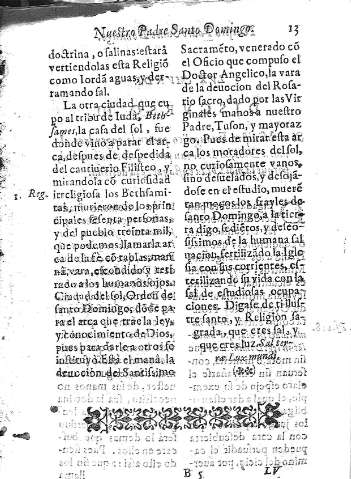 Nuestro Padre Santo Domingo. 13
doctrina, o salinas: estarà
vertiendolas esta Religiō
como Iordā aguas, y der-
ramando sal.
La otra ciudad que cu
po al tribu de Iudà, Beth-
sames, la casa del sol, fue
donde vino a parar el ar-
ca, despues de despedida
del cautiuerio Filisteo, y
mirandola cō curiosidad
1. Reg. irreligiosa los Bethsami-
tas, murieron de los prin-
cipales setenta personas,
y del pueblo treinta mil,
que podemos llamarla ar
ca de la fè, cō tablas, man-
nà, vara, escōdido y reti-
rado a los humanos ojos.
Ciudad del sol, Orden de
santo Domingo, dōde pa-
ra el arca que trae la ley,
y conocimiento de Dios,
pues para darle a otros se
instituyò. Està el manà, la
deuocion del Santissimo
Sacramēto, venerado cō
el Oficio que compuso el
Doctor Angelico, la vara
de la deuocion del Rosa-
rio sacro, dado por las Vir
ginales manos a nuestro
Padre, Tuson, y mayoraz
go. Pues de mirar esta ar
ca los moradores del sol,
no curiosamente vanos,
sino desuelados, y dexā-
dose en el estudio, mueren
tan
santo Domingo, a la tierra
digo, sediētos, y deseo-
sissimos de la humana sal
uacion, fertilizādo la Igle
sia con sus corrientes, es-
terilizando su vida con la
sal de estudiosas ocupa
ciones. Digase de tu ilus-
tre santo, y Religion sa-
grada, que eres sal, y
que eres luz. Sal ter-
ræ Lux mundi,
(&c)
B 5 LV.